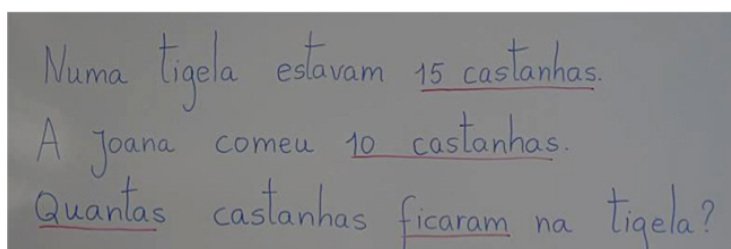 Numa tigela estavam 15 castanhas.
A Joana comeu 10 castanhas.
Quantas castanhas ficaram na tigela?